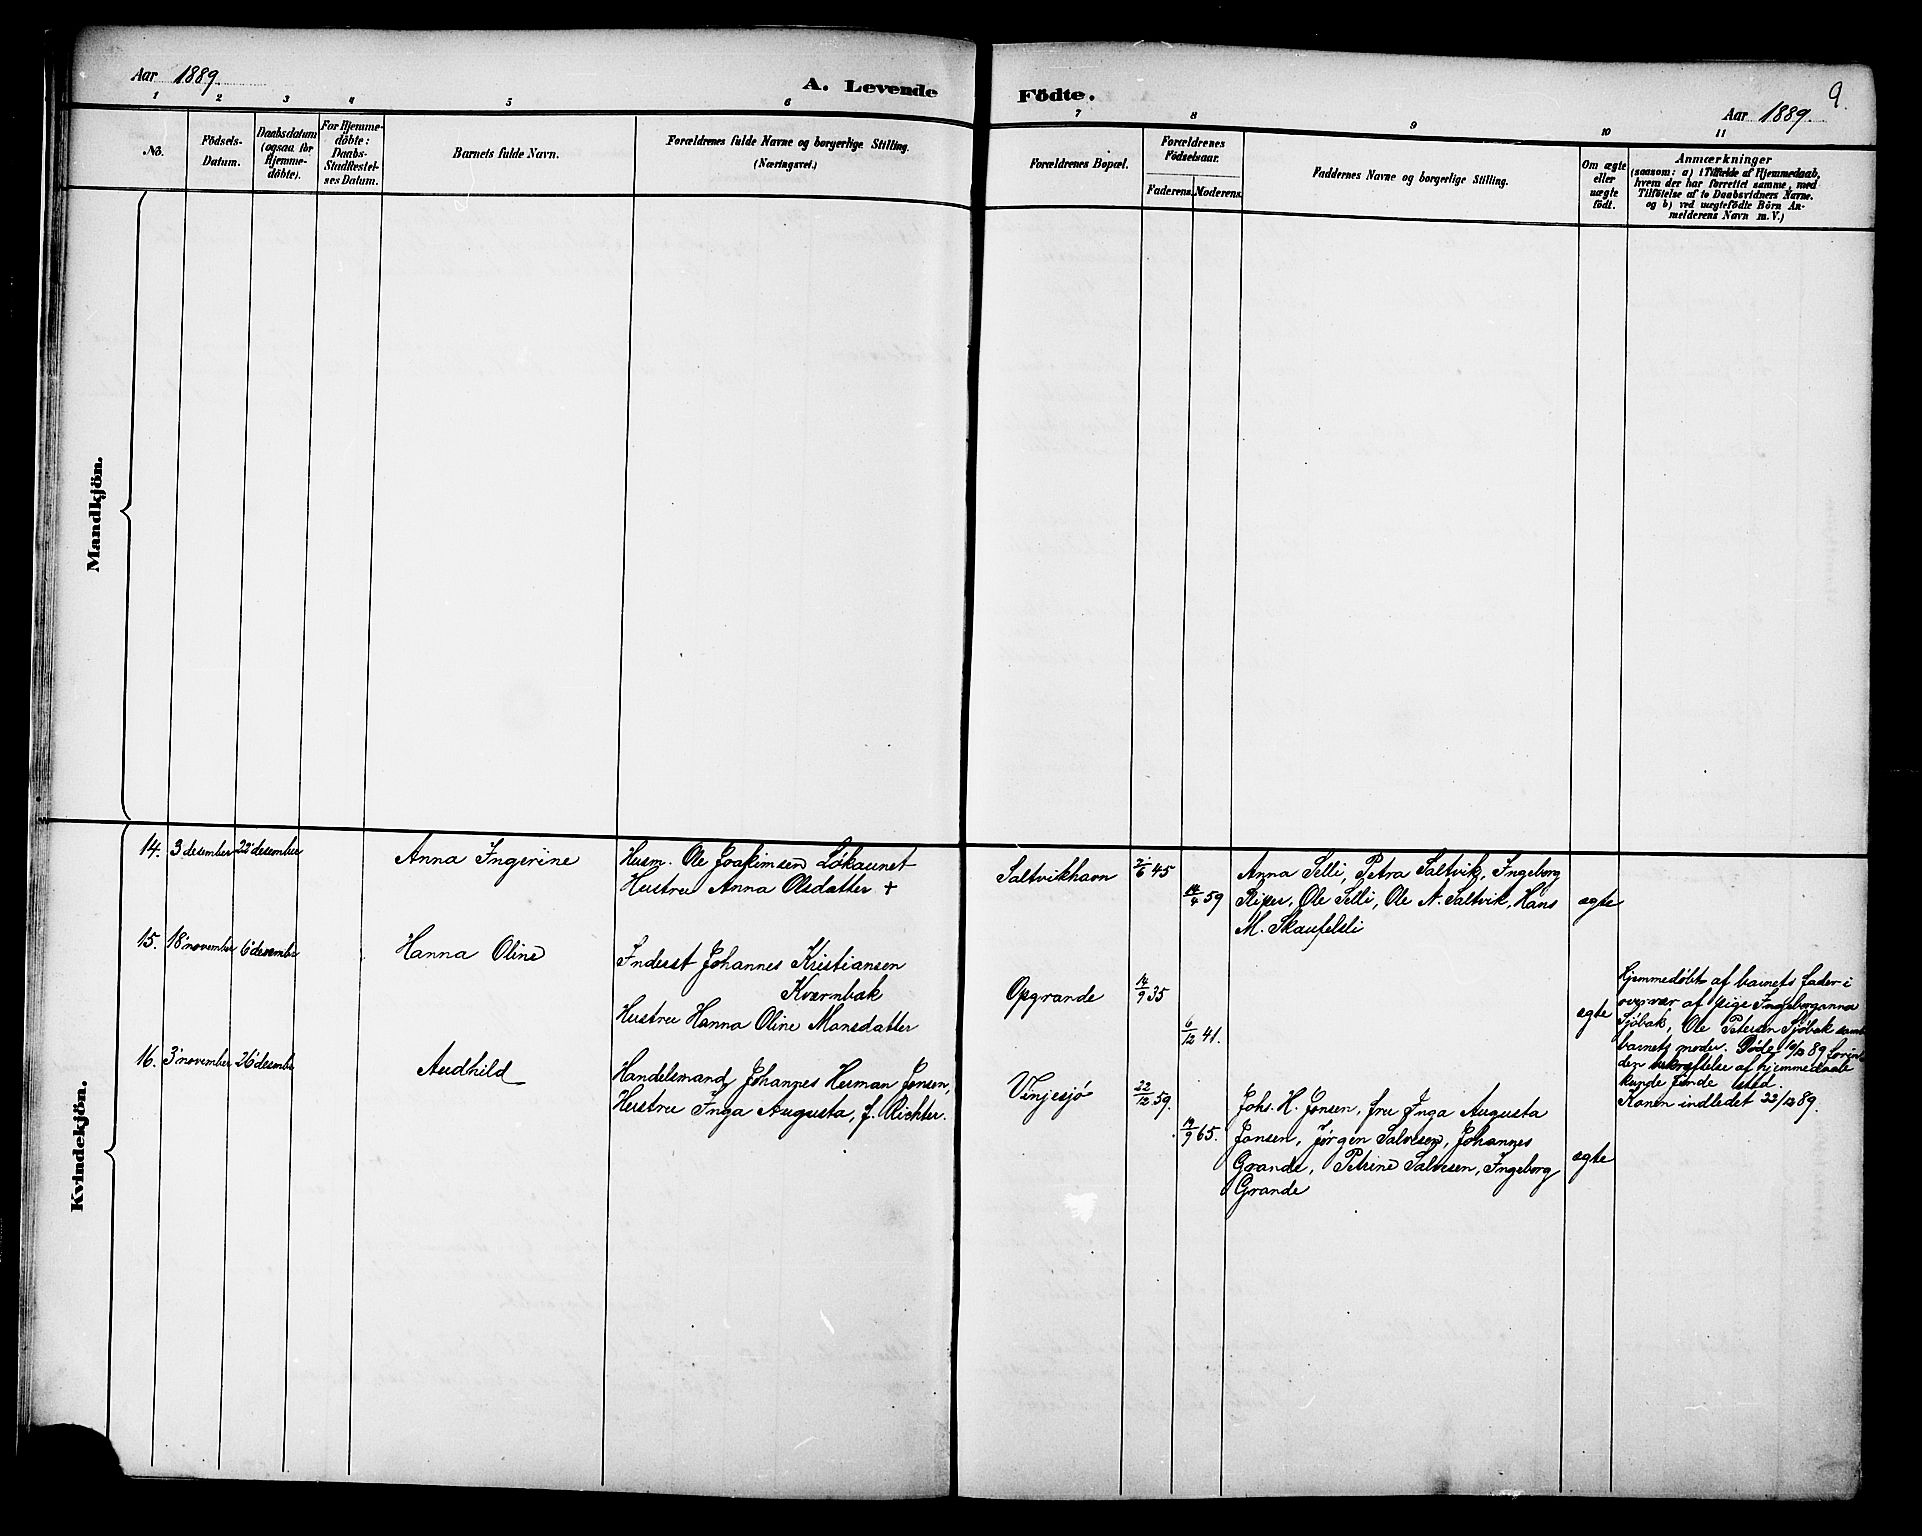 Aar 1889.
A. Levende
Födte.
9.
Aar 1889.
1 2 3 4 5 6 7 8 9 10 11
No.
Födsels-
Datum.
Daabsdatum
(ogsaa for
Hjemme-
döbte).
For Hjemme-
döbte:
Daabs-
Stadfæstel-
ses Datum.
Barnets fulde Navn.
Forældrenes fulde Navne og borgerlige Stilling.
(Næringsvei.)
Forældrenes Bopæl.
Forældrenes
Födselsaar.
Faderens. Moderens.
Faddernes Navne og borgerlige Stilling.
Om ægte
eller
uægte
födt.
Anmærkninger
(saasom: a) i Tilfælde af Hjemmedaab,
hvem der har forrettet samme, med
Tilföielse af to Daabsvidners Navne.
og b) ved uægtefödte Börn An-
melderens Navn m. V.)
Mandkjön.
Kvindekjön.
14. 3 desember 22 desember
Anna Ingerine
Husm. Ole Joakimsen Løkaunet
Hustru Anna Olsdatter +
Saltvikhavn
2/6 45
14/4 59
Anna Selli, Petra Saltvik, Ingeborg
Ole Selli, Ole N. Saltvik, Hans
M. Skaufelsli
ægte
15. 18 november 6 desember
Hanna Oline
Inderst Johannes Kristiansen
Kvernbak
Hustru Hanna Oline Monsdatter
Opgrande
14/9 35
6/12 41.
ægte
Hjemmedøbt af barnets fader i
overvær af pige Ingeborganna
Sjøbak, Ole Petersen Sjøbak samt
barnets moder. Døde 10/12 89 forind
den bekræftelse af hjemmedaabe
kunde finde sted.
Konen indledet 22/12 89.
16. 3 november 26 desember
Audhild
Handelsmand Johannes Herman Jensen,
Hustru Inga Augusta, f. Richter.
Vinjesjø
22/12 59.
19/9 65.
Johs. H. Jensen, fru Inga Augusta
Jensen, Jørgen Salvesen, Johannes
Grande, Petrine Salvesen, Ingeborg
Grande
ægte